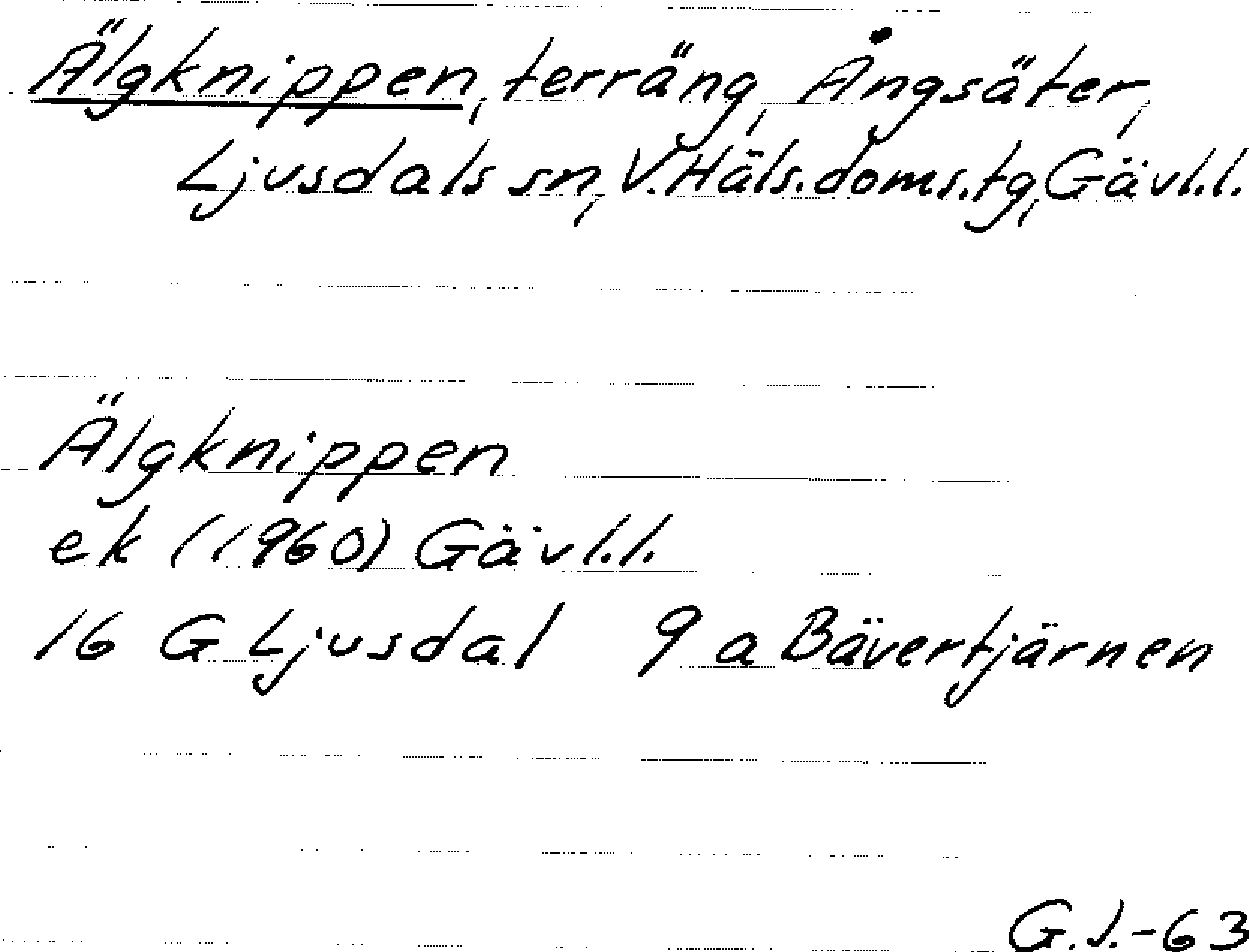 Älgknippen, terräng, Ångsäter,
Ljusdals sn, V. Häls. doms.tg, Gävl.l.
Älgknippen
ek (1960) Gävl.l.
16 G Ljusdal 9 a Bävertjärnen
G.J.-63